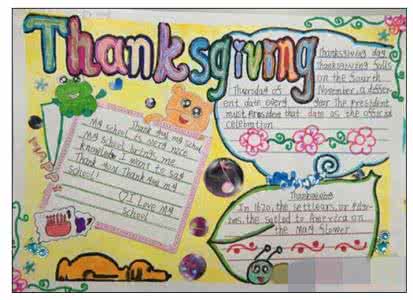 Thanksgiving
Thanksgiving day
Thanksgiving falls
on the fourth
Thursday of November, a differ
ent date every year The President
must that date as the official
celebration
Thank you my school
My school is very nice
My school brings me
knowledge I want to say
Thank you Thank you my
school!
I love my
school
HAPPY
Thanksgiving
In 1620, the settlears, or Pilgr
ims, the sailed to America on
the May flower